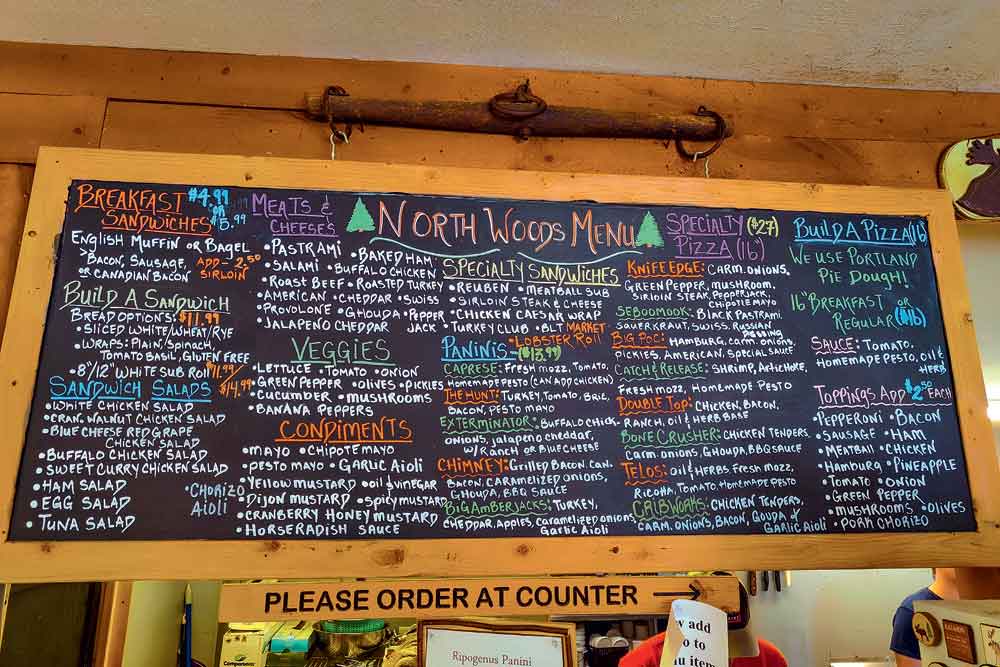 NORTH WOODS MENU
BREAKFAST $4.99
SANDWICHES OR $5.99
ENGLISH MUFFIN OR BAGEL
BACON, SAUSAGE,
OR CANADIAN BACON
ADD - 2.50
SIRLOIN
BUILD A SANDWICH
BREAD OPTIONS: $11.99
• SLICED WHITE/WHEAT/RYE
• WRAPS: PLAIN, SPINACH,
TOMATO BASIL, GLUTEN FREE
• 8"/12" WHITE SUB ROLL 11.99/
$14.99
SANDWICH SALADS
• WHITE CHICKEN SALAD
• CRAN. WALNUT CHICKEN SALAD
• BLUE CHEESE RED GRAPE
CHICKEN SALAD
• BUFFALO CHICKEN SALAD
• SWEET CURRY CHICKEN SALAD
• HAM SALAD
• EGG SALAD
• TUNA SALAD
• CHORIZO
AIOLI
MEATS &
CHEESES
• PASTRAMI • BAKED HAM
• SALAMI • BUFFALO CHICKEN
• ROAST BEEF • ROASTED TURKEY
• AMERICAN • CHEDDAR • SWISS
• PROVOLONE • GHOUDA • PEPPER
• JALAPENO CHEDDAR JACK
VEGGIES
• LETTUCE • TOMATO • ONION
• GREEN PEPPER • OLIVES • PICKLES
• CUCUMBER • MUSHROOMS
• BANANA PEPPERS
CONDIMENTS
• MAYO • CHIPOTE MAYO
• PESTO MAYO • GARLIC AIOLI
• YELLOW MUSTARD • OIL & VINEGAR
• DIJON MUSTARD • SPICY MUSTARD
• CRANBERRY HONEY MUSTARD
• HORSERADISH SAUCE
SPECIALTY SANDWICHES
• REUBEN • MEATBALL SUB
• SIRLOIN STEAK & CHEESE
• CHICKEN CAESAR WRAP
• TURKEY CLUB • BLT MARKET
• LOBSTER ROLL
PANINIS - ($13.99)
CAPRESE: FRESH MOZZ, TOMATO,
HOMEMADE PESTO (CAN ADD CHICKEN)
THE HUNT: TURKEY, TOMATO, BRIE,
BACON, PESTO MAYO
EXTERMINATOR: BUFFALO CHICK.
ONIONS, JALAPENO CHEDDAR,
W/ RANCH OR BLUE CHEESE
CHIMNEY: GRILLED BACON. CAN.
BACON, CARAMELIZED ONIONS,
GHOUDA, BBQ SAUCE
BIG AMBERJACKS: TURKEY,
CHEDDAR, APPLES, CARAMELIZED ONIONS,
GARLIC AIOLI
SPECIALTY ($27)
PIZZA (16")
KNIFE EDGE: CARM. ONIONS,
GREEN PEPPER, MUSHROOM,
SIRLOIN STEAK, PEPPERJACK,
CHIPOTE MAYO
SEBOOMOOK: BLACK PASTRAMI
SAUERKRAUT, SWISS, RUSSIAN
DRESSING
BIG POC: HAMBURG, CARM. ONIONS,
PICKLES, AMERICAN, SPECIAL SAUCE
CATCH & RELEASE: SHRIMP, ARTICHOKE,
FRESH MOZZ, HOMEMADE PESTO
DOUBLE TOP: CHICKEN, BACON,
RANCH, OIL & HERB BASE
BONE CRUSHER: CHICKEN TENDERS,
CARM. ONIONS, GHOUDA, BBQ SAUCE
TELOS: OIL & HERBS, FRESH MOZZ,
RICOTTA, TOMATO, HOMEMADE PESTO
CRIBWORKS: CHICKEN TENDERS,
CARM. ONIONS, BACON, GOUDA &
GARLIC AIOLI
BUILD A PIZZA (16")
WE USE PORTLAND
PIE DOUGH!
16" BREAKFAST OR
REGULAR ($16)
SAUCE: TOMATO,
HOMEMADE PESTO, OIL &
HERB
TOPPINGS ADD $2.50 EACH
• PEPPERONI • BACON
• SAUSAGE • HAM
• MEATBALL • CHICKEN
• HAMBURG • PINEAPPLE
• TOMATO • ONION
• GREEN PEPPER
• MUSHROOMS • OLIVES
• PORK CHORIZO
PLEASE ORDER AT COUNTER →
Ripogenus Panini
w add
o to
nu item